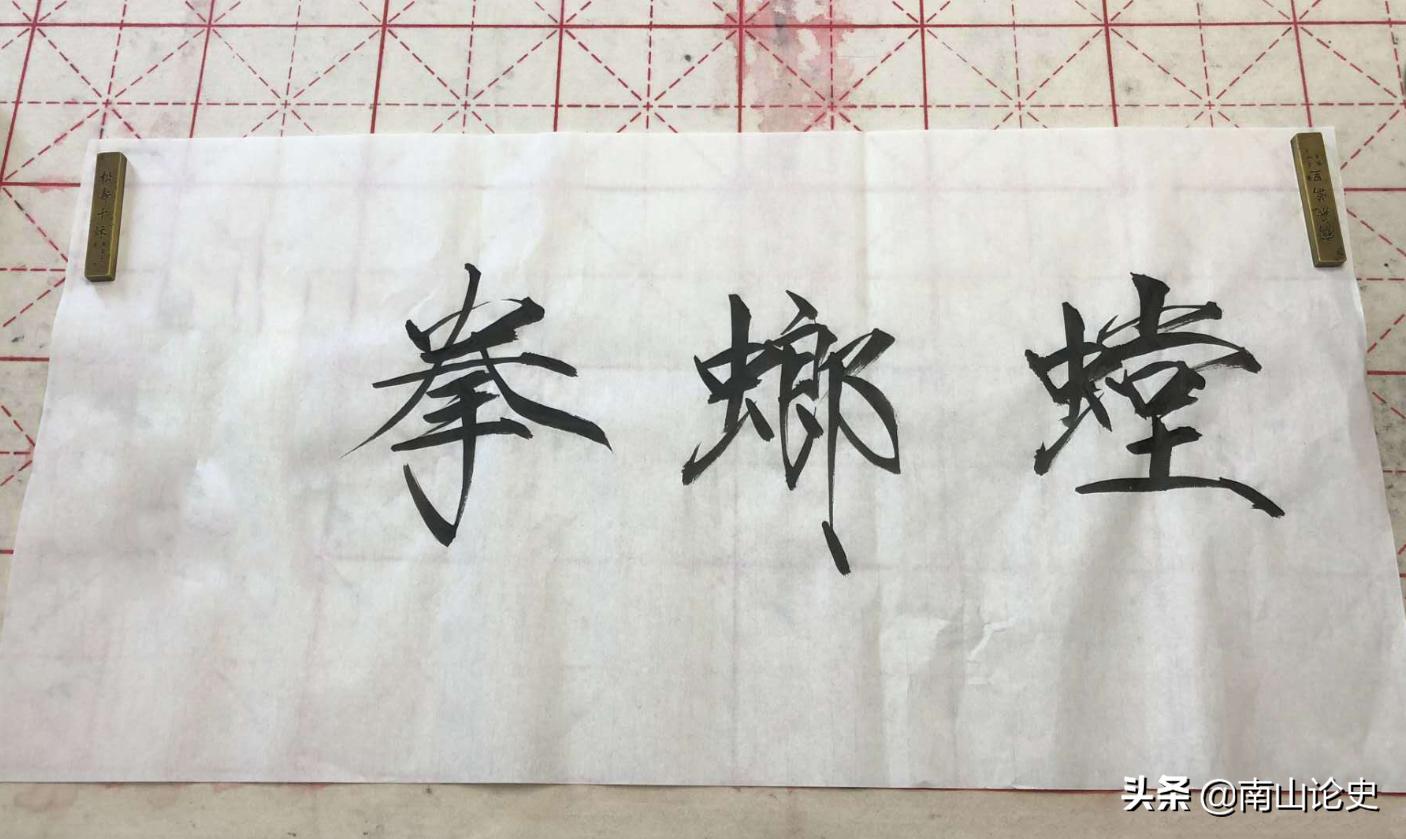 螳螂拳
头条 @南山论史